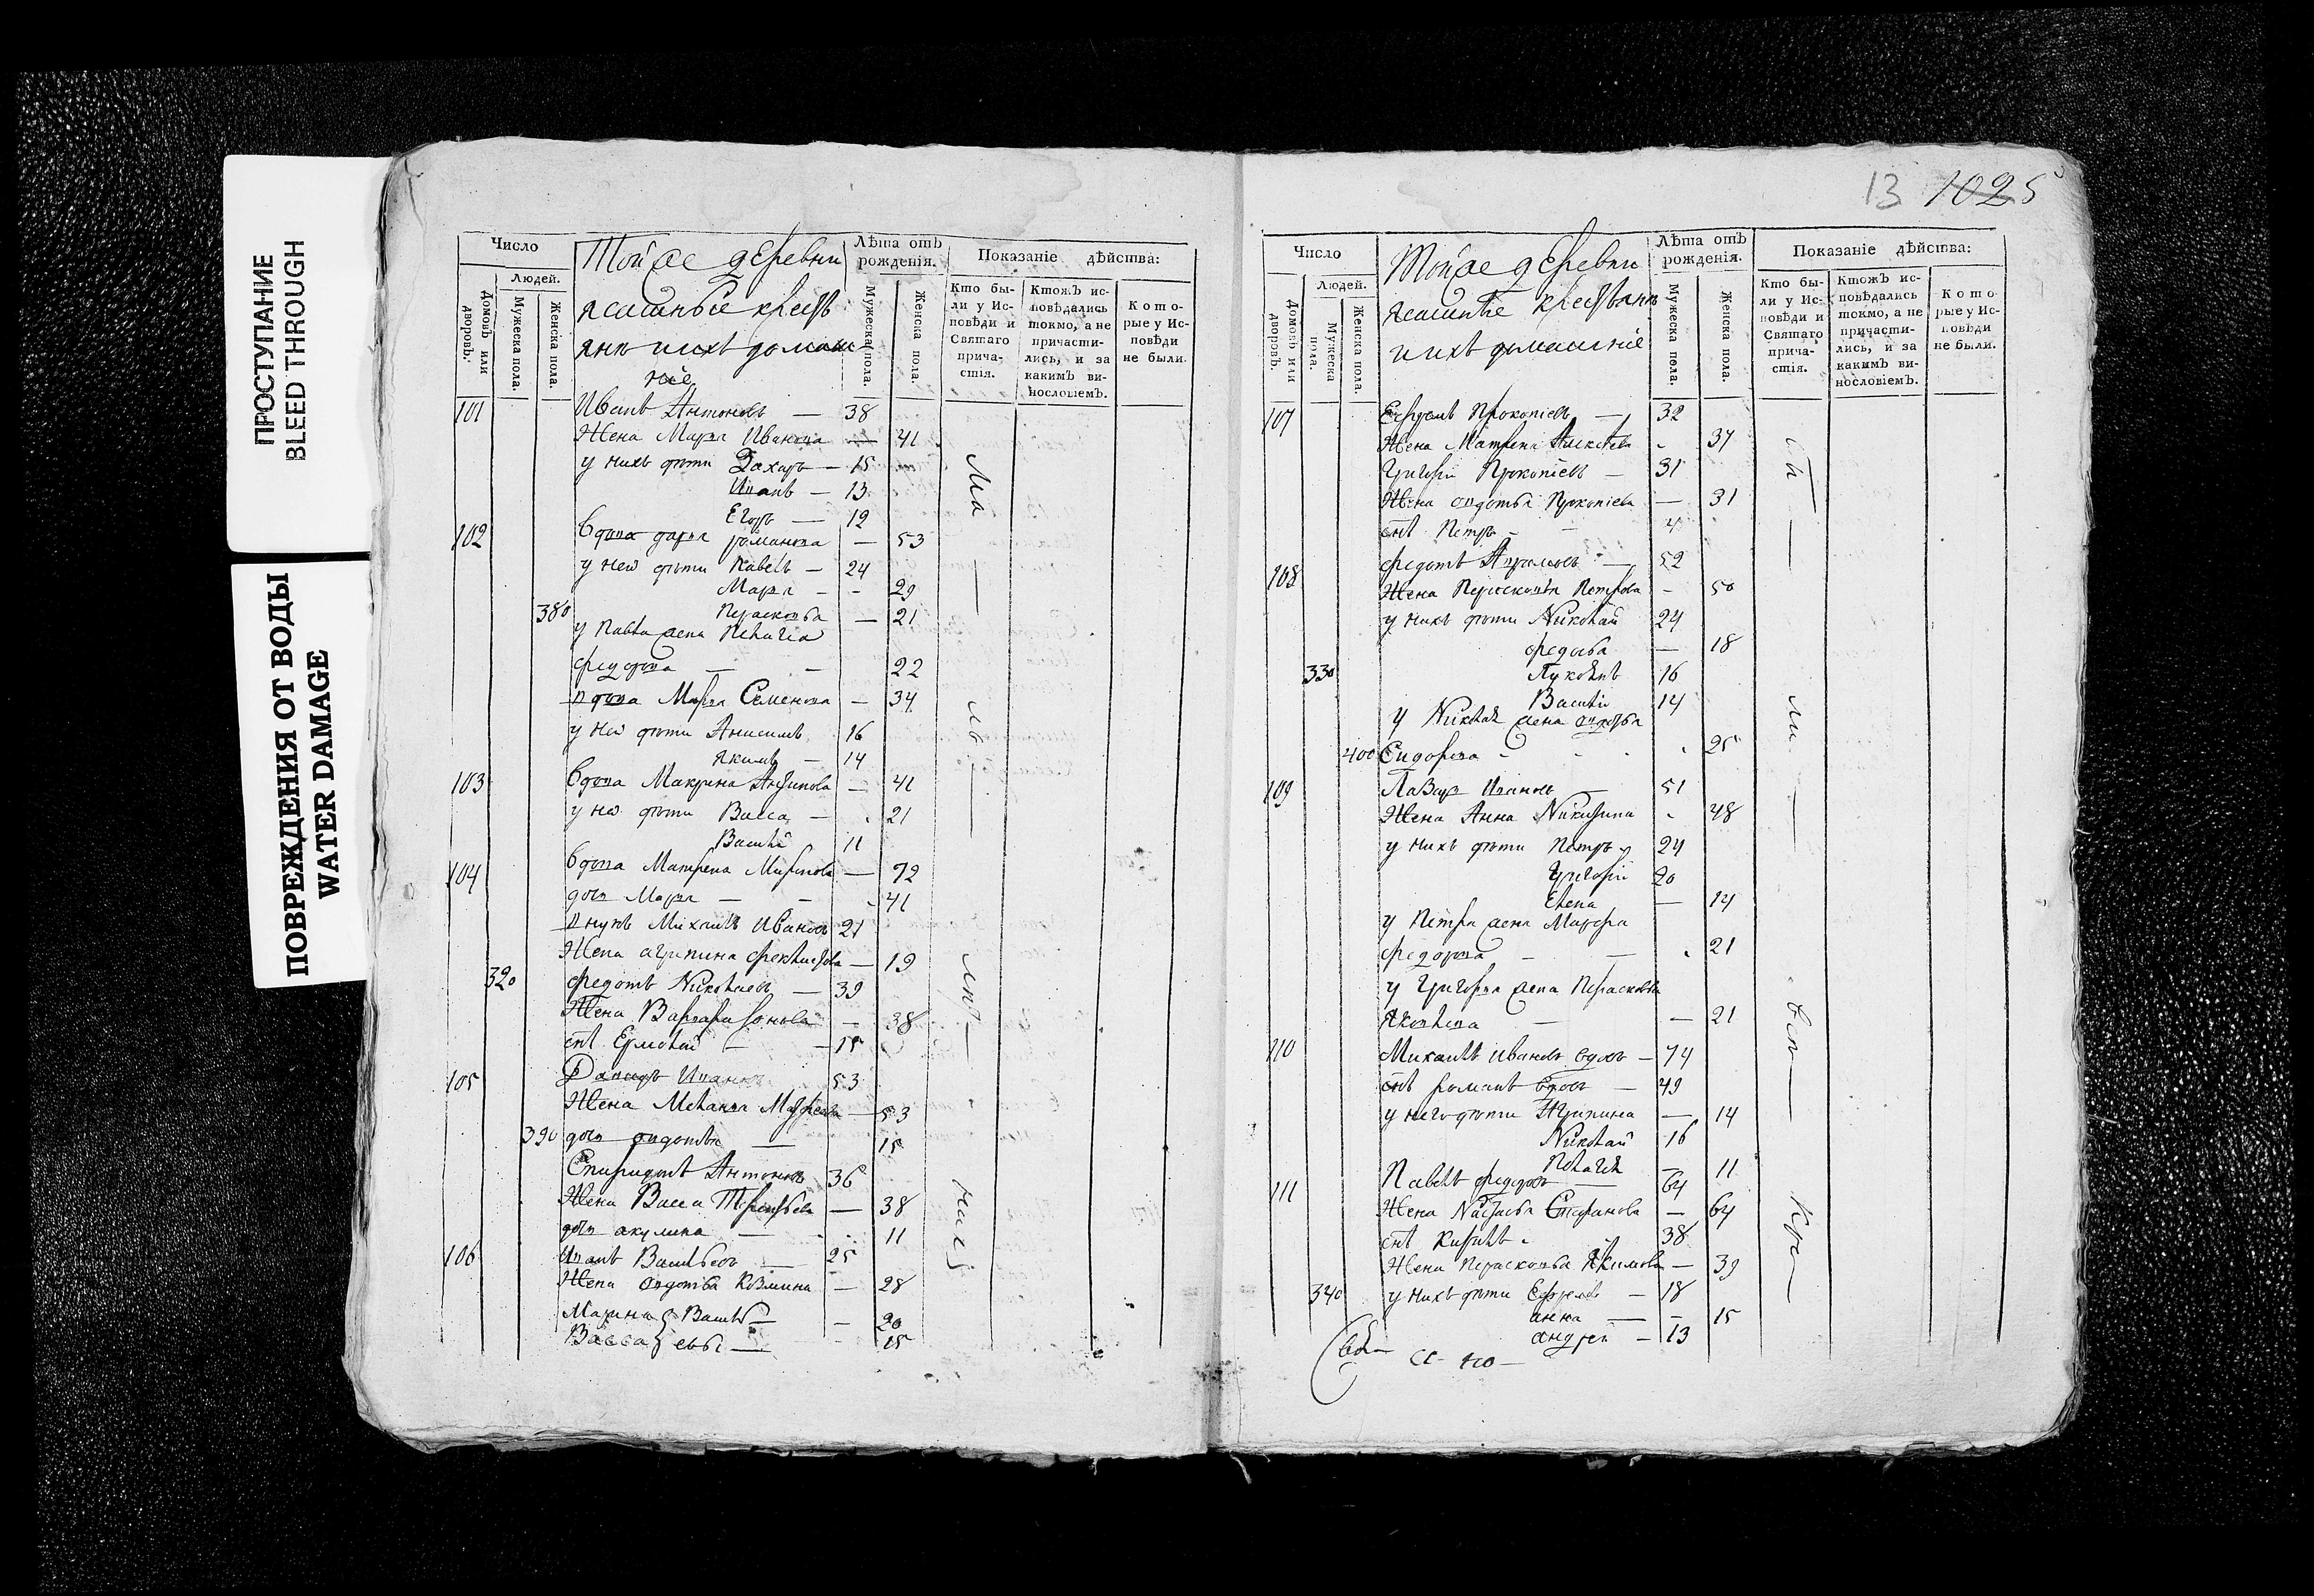 ПРОСТУПАНИЕ
BLEED THROUGH
ПОВРЕЖДЕНИЯ ОТ ВОДЫ
WATER DAMAGE
Число
Людей.
Домовъ или дворовъ.
Мужеска пола.
Женска пола.
Тойже деревни
ясашные кресть
яне и ихъ домаш
ніе
Лѣта отъ рожденія.
Мужеска пола.
Женска пола.
Показаніе дѣйства:
Кто бы-
ли у Ис-
повѣди и
Святаго
прича-
стія.
Ктожъ ис-
повѣдались
токмо, а не
причасти-
лись, и за
какимъ ви-
нословіемъ.
Кото-
рые у Ис-
повѣди
не были.
101 Иванъ Антоновъ — 38
Жена Марья Иванова — 41
у нихъ дѣти Захаръ — 15
Иванъ — 13
Егоръ — 12
102 вдова дарья романова — 53
у ней дѣти Павелъ — 24
Марья — 29
380 Парасковья — 21
у Павла жена Пелагея
федорова — 22
вдова Марья Семенова — 34
у ней дѣти Анисимъ 16
Якимъ — 14
103 вдова Макрина Антипова — 41
у ней дѣти Васса — 21
Василій 11
104 вдова Матрена Миронова — 72
дочь Марья — 41
внукъ Михаилъ Ивановъ 21
Жена агрипина — 19
320 федотъ Николаевъ — 39
Жена Варвара — 38
сынъ Ермолай — 15
105 Давидъ Ивановъ 53
Жена Меланья — 53
390 дочь авдотья — 15
Спиридонъ Антоновъ 36
Жена Васса — 38
дочь акулина — 11
106 Иванъ Васильевъ — 25
Жена Авдотья Козмина — 28
Марина Василь — 20
Васса евы — 15
13 1025
Число
Людей.
Домовъ или дворовъ.
Мужеска пола.
Женска пола.
Тойже деревни
ясашные крестьяне
и ихъ домашніе
Лѣта отъ рожденія.
Мужеска пола.
Женска пола.
Показаніе дѣйства:
Кто бы-
ли у Ис-
повѣди и
Святаго
прича-
стія.
Ктожъ ис-
повѣдались
токмо, а не
причасти-
лись, и за
какимъ ви-
нословіемъ.
Кото-
рые у Ис-
повѣди
не были.
107 Ефремъ Прокопіевъ — 32
Жена Матрена Алексѣева - 37
Григорій Прокопіевъ — 31
Жена авдотья Прокопіева — 31
сынъ Петръ - 4
108 федотъ — 52
Жена Парасковья Петрова - 50
у нихъ дѣти Николай 24
федосья — 18
330 Лукоянъ 16
Василій 14
у Николая жена авдотья
400 Сидорова - 25
109 Лазарь Ивановъ — 51
Жена Анна Никитина 48
у нихъ дѣти Петръ 24
Григорій 20
Елена — 14
у Петра жена Марфа
федорова — 21
у Григорья жена Парасковья
Яковлева — 21
110 Михаилъ Ивановъ вдовъ — 74
сынъ романъ вдовъ — 49
у него дѣти Агрипина — 14
Николай 16
Пелагея — 11
111 Павелъ федоровъ — 64
Жена Настасья Степанова — 64
сынъ Кирилъ - 38
Жена Парасковья Якимова — 39
340 у нихъ дѣти Ефремъ — 18
анна — 15
андрей — 13